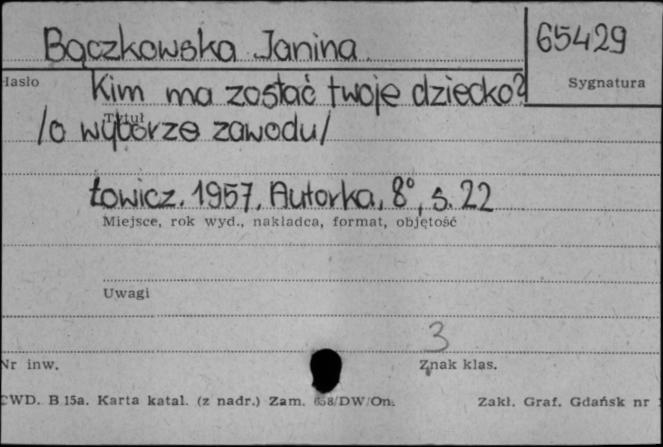 Bączkowska Janina
65429
Hasło
Sygnatura
Kim ma zostać twoje dziecko?
Tytuł
/o wyborze zawodu/
Łowicz. 1957, Autorka, 8°, s. 22
Miejsce, rok wyd., nakładca, format, objętość
Uwagi
3
Nr inw.
Znak klas.
CWD. B 15a. Karta katal. (z nadr.) Zam. 658/DW/On.
Zakł. Graf. Gdańsk nr